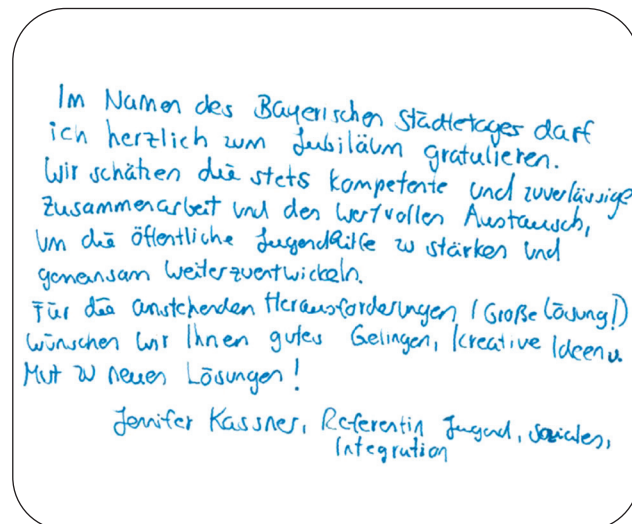 Im Namen des Bayerischen Städtetages darf
ich herzlich zum Jubiläum gratulieren.
Wir schätzen die stets kompetente und zuverlässige
Zusammenarbeit und den wertvollen Austausch,
um die öffentliche Jugendhilfe zu stärken und
gemeinsam weiterzuentwickeln.
Für die anstehenden Herausforderungen (Große Lösung!)
wünschen wir Ihnen gutes Gelingen, kreative Ideen u.
Mut zu neuen Lösungen!
Jenifer Kassner, Referentin Jugend, Soziales,
Integration